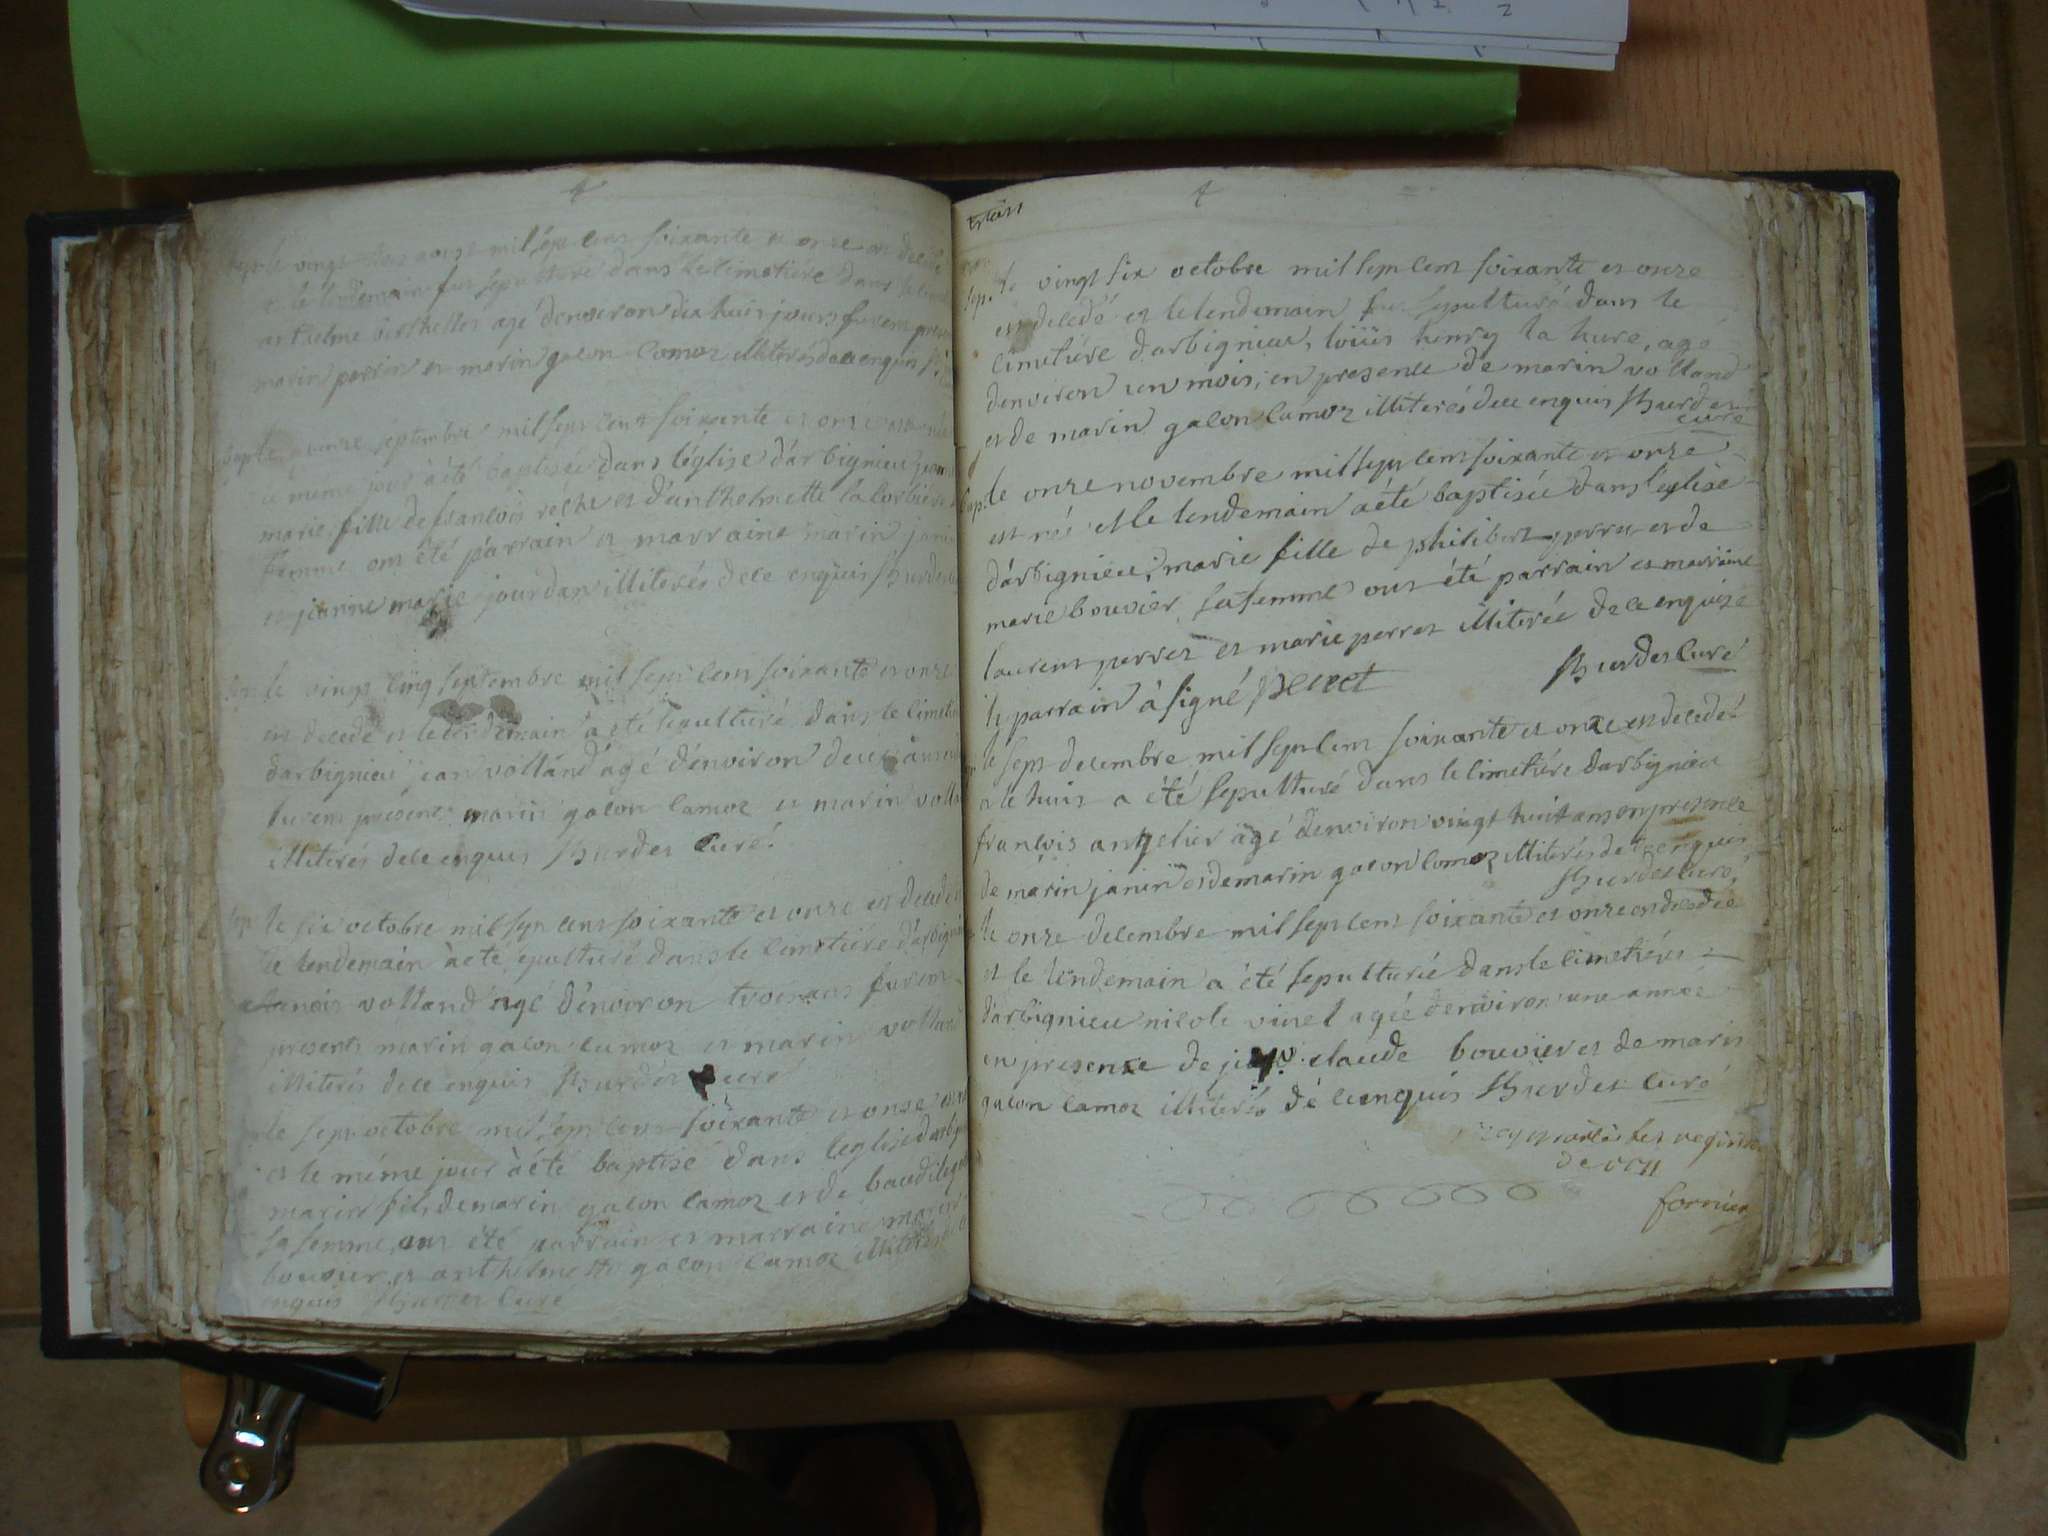 sep. le vingt trois aoust mil sept cens soixante et onze est decede
et le lendemain fut sepulturé dans le cimetiére
antelme berthellet agé d'environ dix huit jours furent presens
marin perrin et marin galon lamoz illiterés de ce enquis
bapt. le quinze septembre mil sept cens soixante et onze est née
et le meme jour a été baptisée dans l'église d'arbignieu jeanne
marie fille de francois reche et d'anthelmette la corbiére sa
femme ont été parrain et marraine marin janin
et jeanne marie jourdan illiterés de ce enquis
sep. le vingt cinq septembre mil sept cens soixante et onze
est decedé et le lendemain a été sepulturé dans le cimetiére
d'arbignieu jean volland agé d'environ deux ans
furent presens marin galon lamoz et marin volland
illiterés de ce enquis hurdes curé
sep. le six octobre mil sept cens soixante et onze est decedé et
le lendemain a eté sepulturé dans le cimetiére d'arbignieu
volland agé d'environ trois ans furent
presents marin galon lamoz et marin volland
illiterés de ce enquis hurdes curé
le sept octobre mil sept cens soixante et onze est né
et le même jour a été baptisé dans l'eglise d'arbignieu
marin fils de marin galon lamoz et de
sa femme, ont été parrain et marraine marin
bouvier et anthelmette galon lamoz illiterés de ce
enquis hurdes curé
sep. le vingt six octobre mil sept cens soixante et onze
est decedé et le lendemain fut sepulturé dans le
cimetiére d'arbignieu, loüis henry la hure, age
d'environ un mois, en presence de marin volland
et de marin galon lamoz illiterés de ce enquis hurdes
curé
bap. le onze novembre mil sept cens soixante et onze
est née et le lendemain a été baptisée dans l'église
d'arbignieu, marie fille de philibert perret et de
marie bouvier sa femme ont été parrain et marraine
laurent perret et marie perret illiterée de ce enquise
le parrain à signé perret hurdes curé
le sept decembre mil sept cens soixante et onze est decedé
et le huit a été sepulturé dans le cimetiére d'arbignieu
francois antelier agé d'environ vingt huit ans en presence
de marin janin et de marin galon lamoz illiterés de ce enquis
hurdes curé
le onze decembre mil sept cens soixante et onze est decedée
et le lendemain a été sepulturée dans le cimetiére
d'arbignieu nicole vinet agée d'environ une année
en presence de claude bouvier et de marin
galon lamoz illiterés de ce enquis hurdes curé
de 1771
fornier